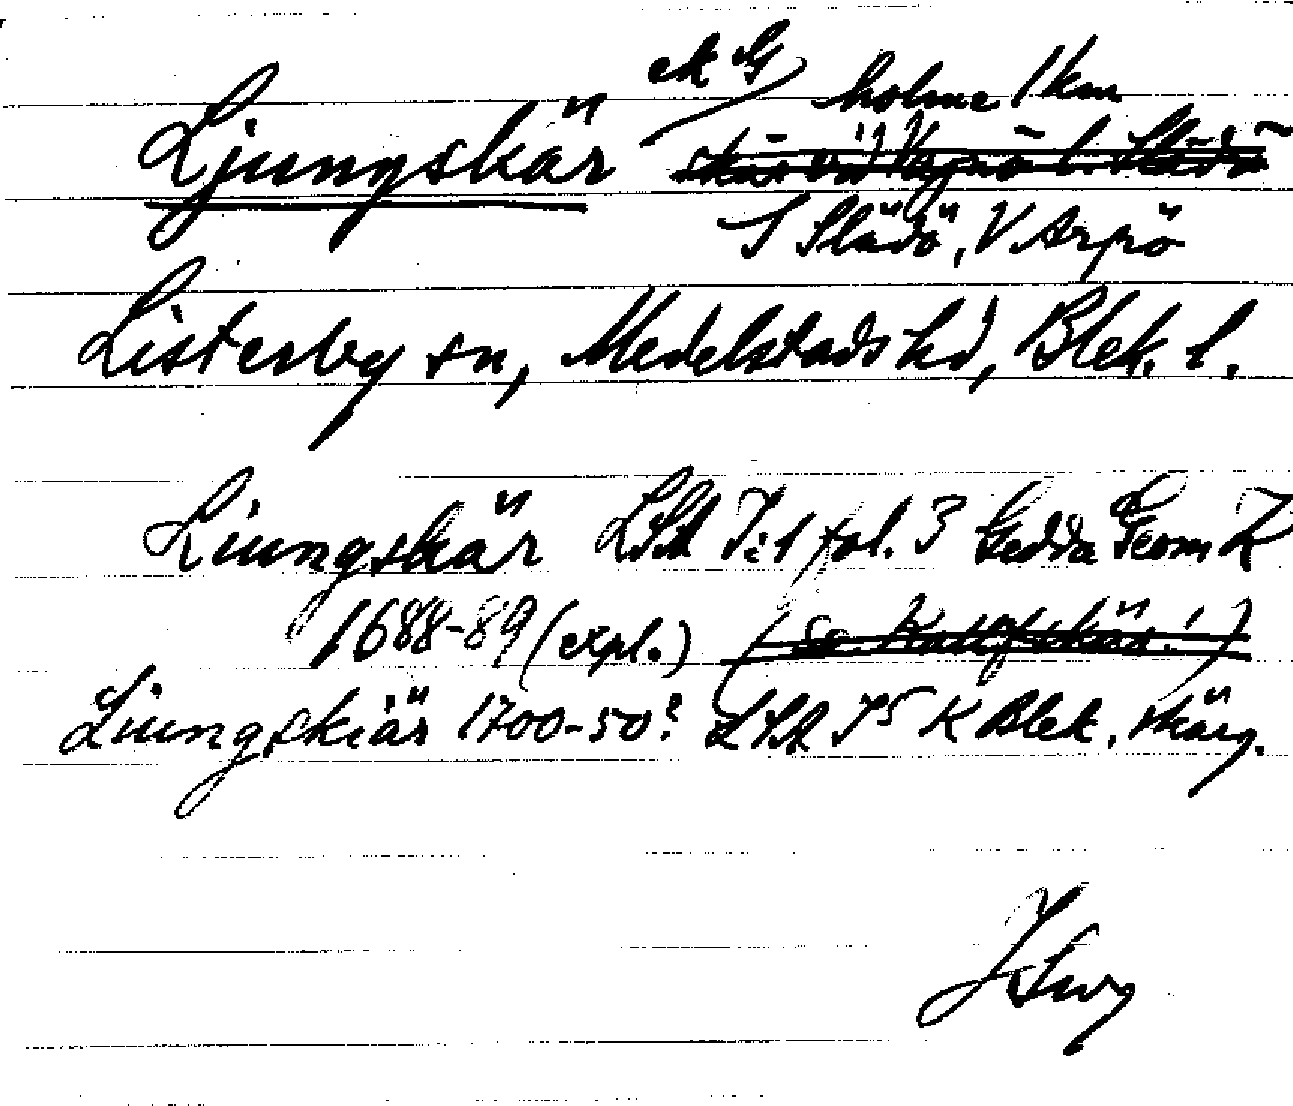 ek G
holme 1 km
Ljungskär
S Slädö, V Arpö
Listerby sn, Medelstads hd, Blek. l.
Liungskär LSA I:1 fol. 3 Gedda Geom K
1688-89 (expl.)
Liungskiär 1700-50? LSA K Blek. skärg.